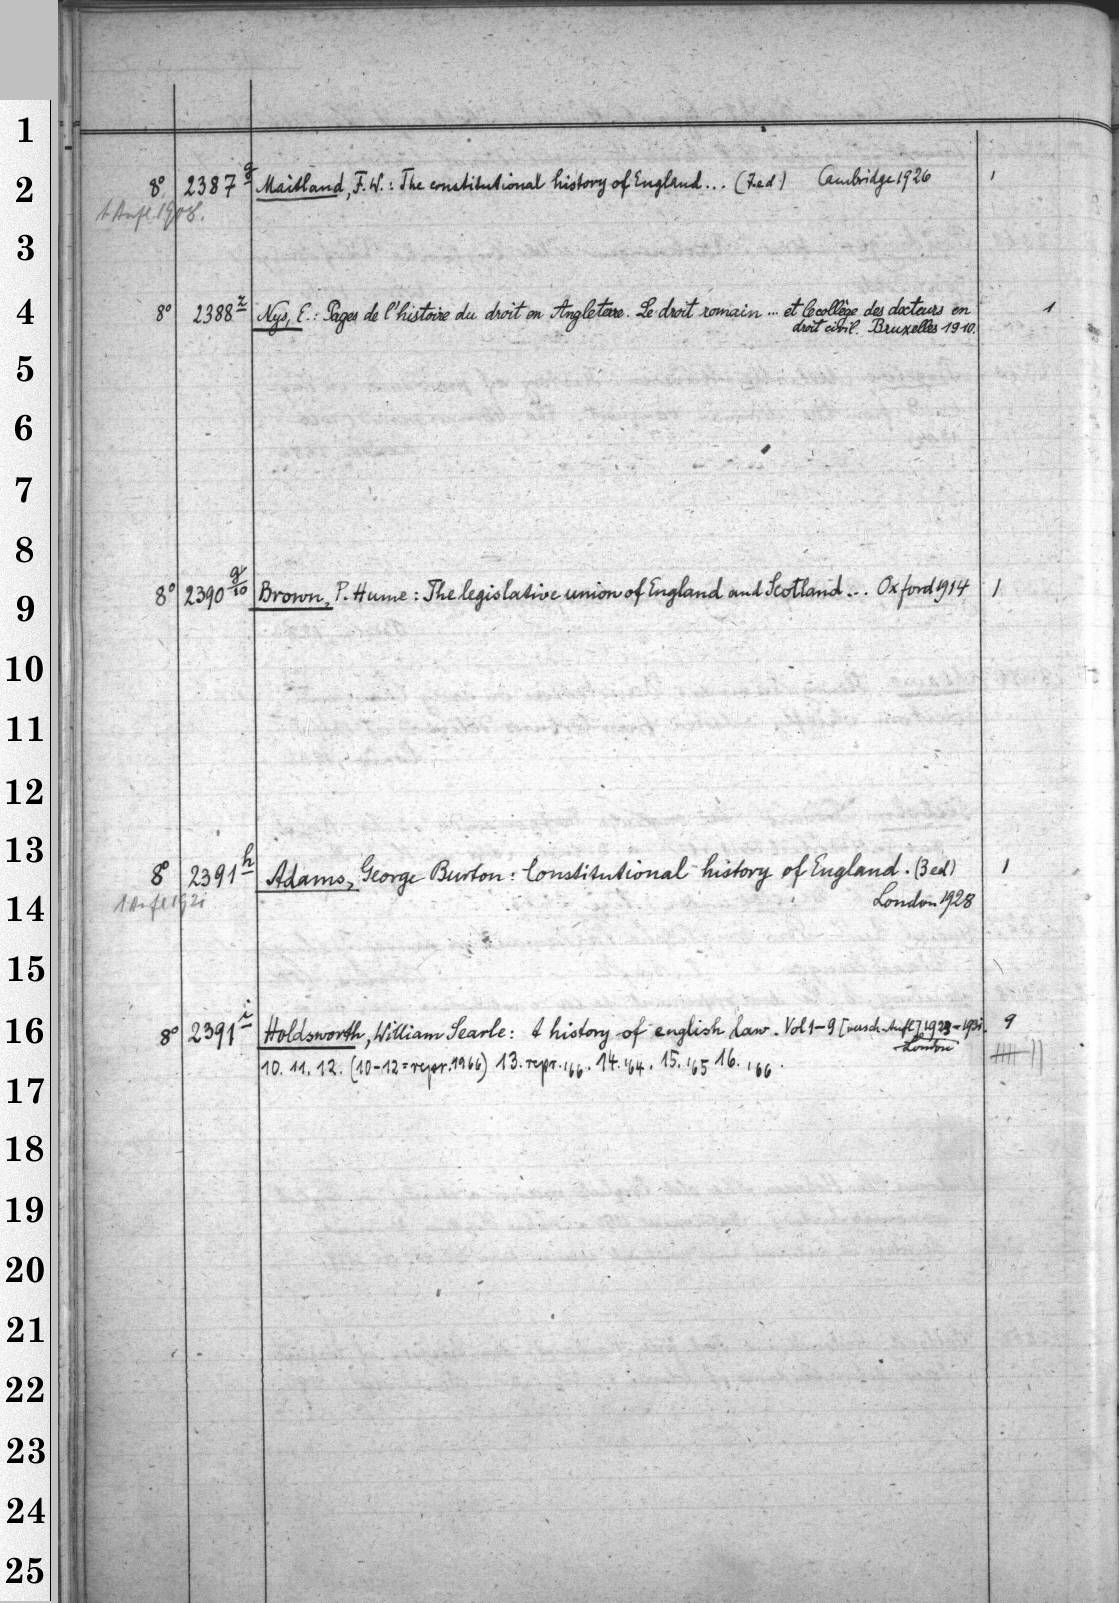 1
2
3
4
5
6
7
8
9
10
11
12
13
14
15
16
17
18
19
20
21
22
23
24
25
8° 2387 g Maitland, F.W.: The constitutional history of England... (7.ed.) Cambridge 1926 1
1 Aufl. 1908.
8° 2388 z Nys, E.: Pages de l'histoire du droit en Angleterre. Le droit romain ... et le collège des docteurs en 1
droit civil. Bruxelles 1910.
8° 2390 g/10 Brown, P. Hume: The legislative union of England and Scotland... Oxford 1914 1
8° 2391 h Adams, George Burton: Constitutional history of England. (3 ed) 1
1 Aufl 1921 London 1928
8° 2391 i Holdsworth, William Searle: A history of english law. Vol 1-9 [versch. Aufl.] 1923-1931. 9
London
10. 11. 12. (10-12 = repr. 1966) 13. repr. '66. 14. '64. 15. '65 16. '66.